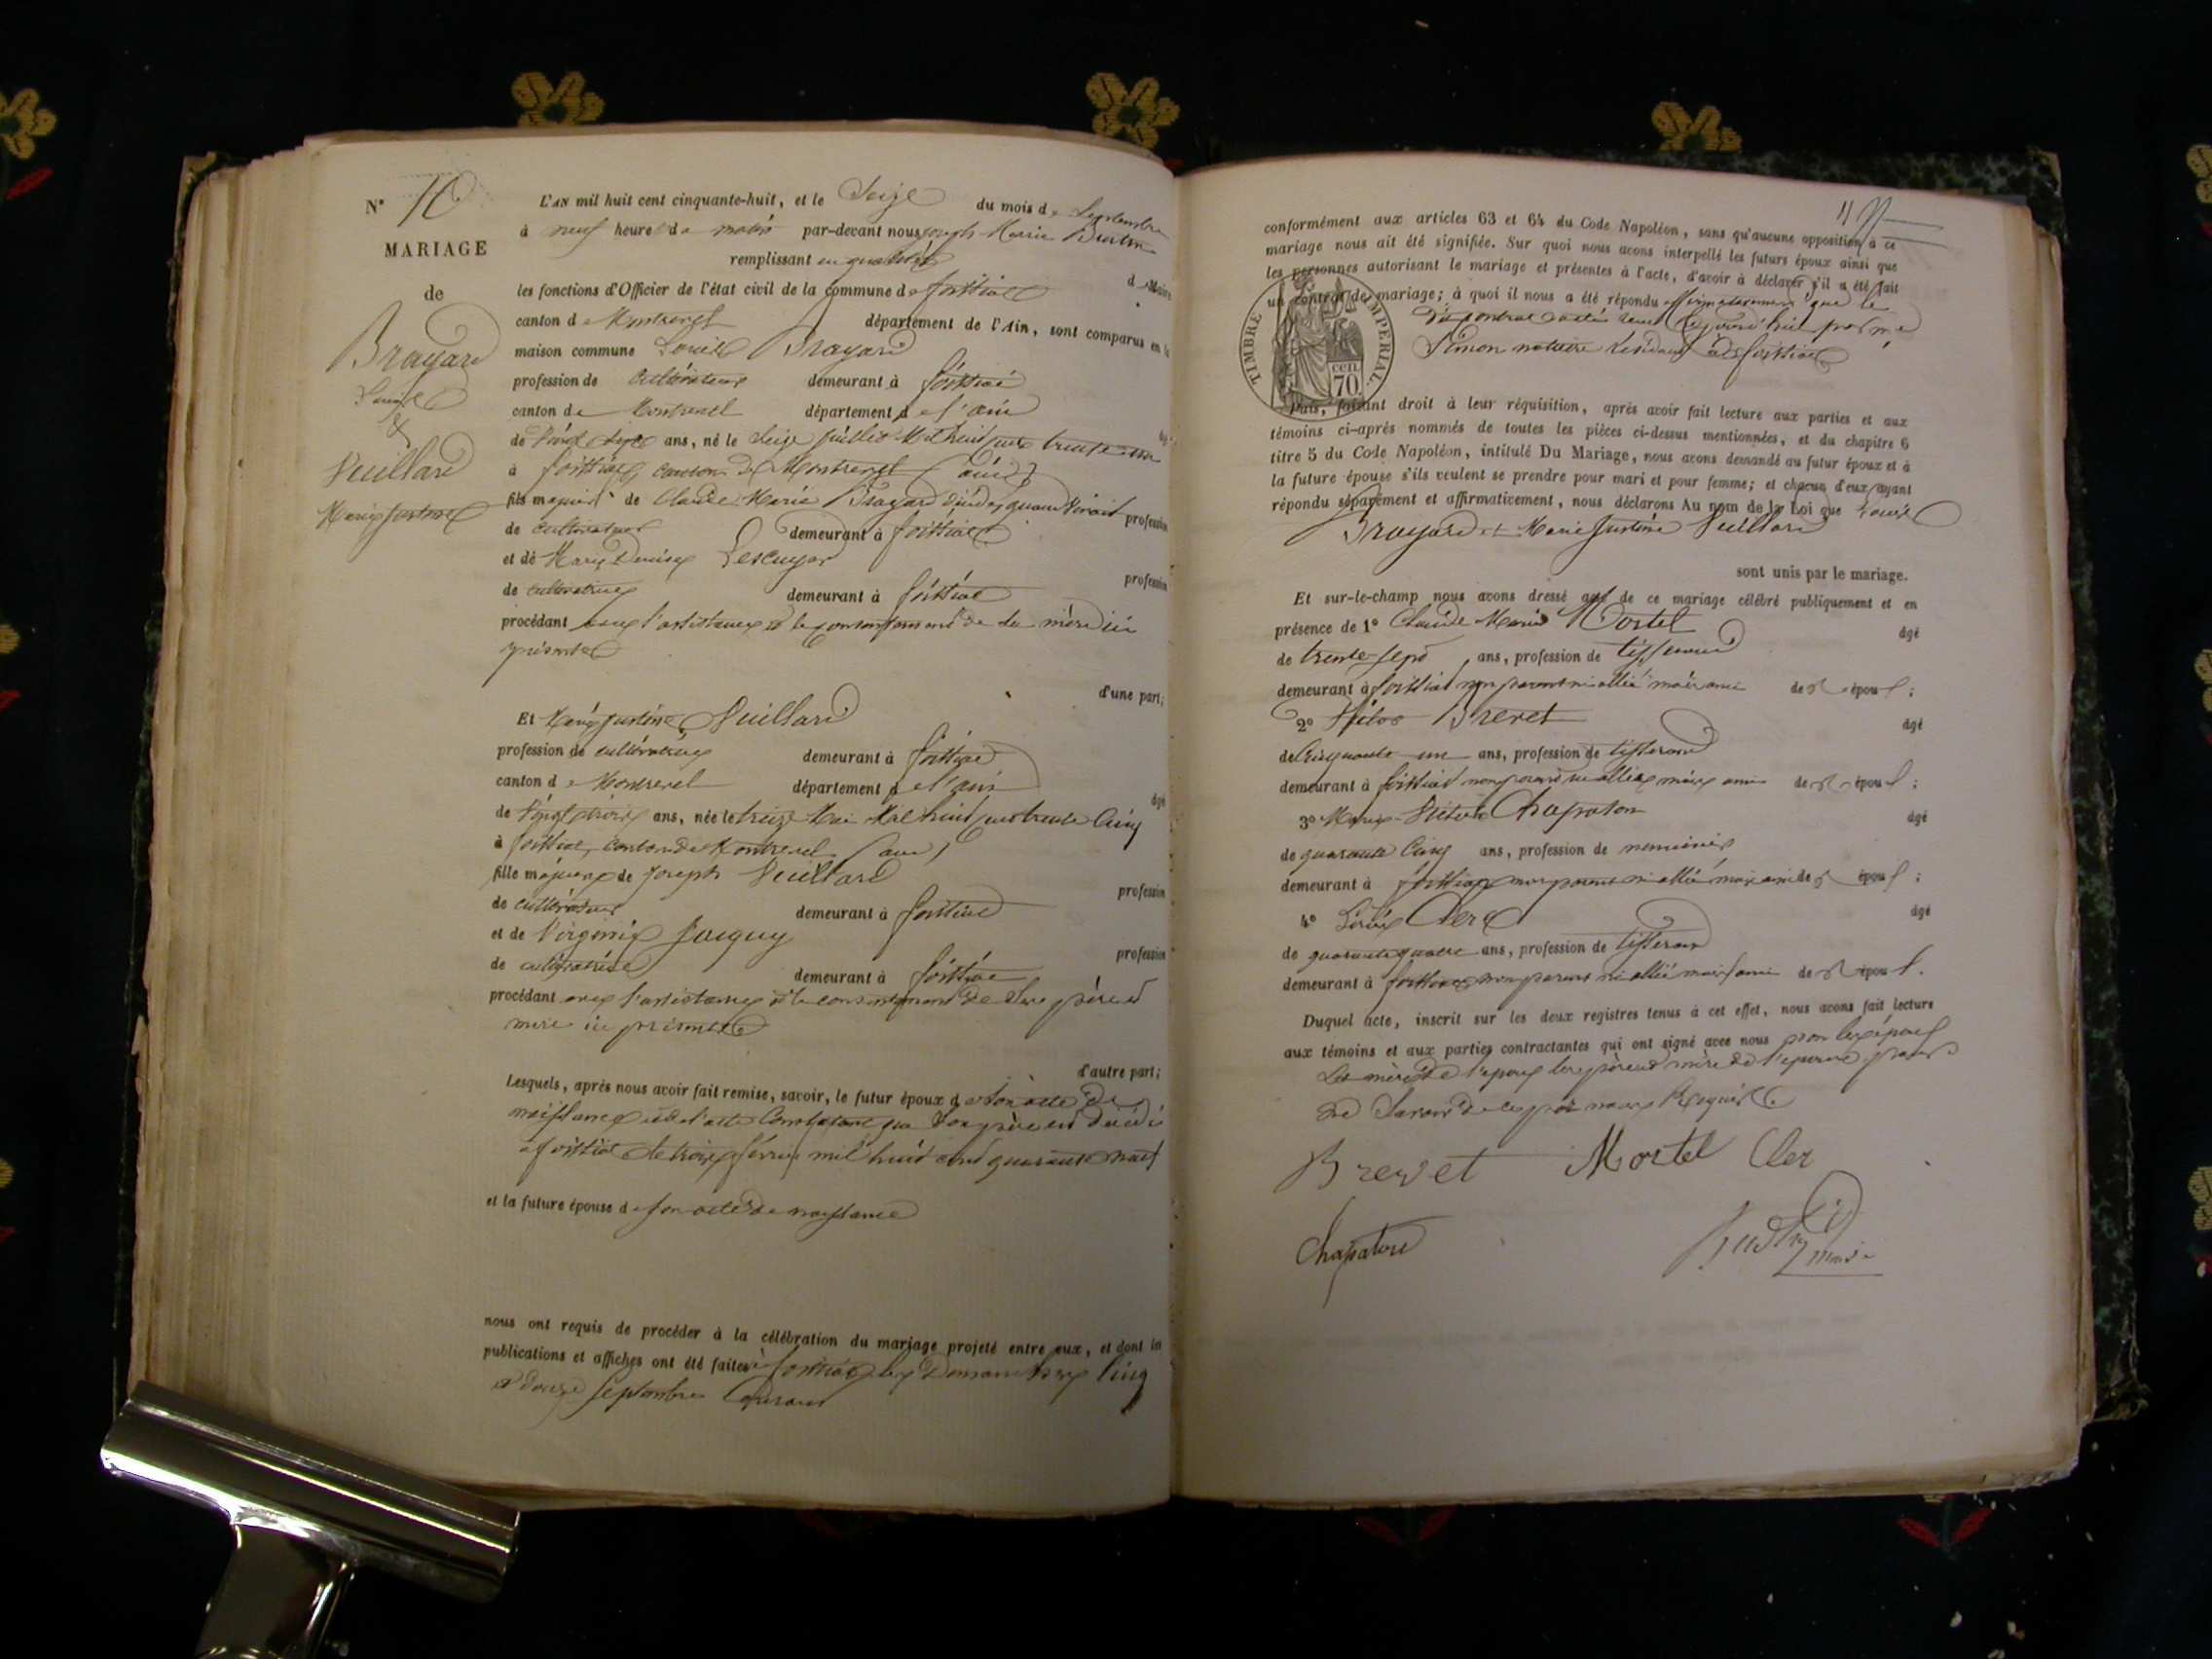 N° 10
MARIAGE
de
Brayard
Louis
&
Vuillard
Marie Justine
L'AN mil huit cent cinquante-huit, et le Seize du mois de Septembre
à neuf heures du matin par-devant nous Joseph Marie
remplissant en qualité de Maire
les fonctions d'Officier de l'état civil de la commune de foissiat
canton de Montrevel département de l'Ain, sont comparus en la
maison commune Louis Brayard
profession de cultivateur demeurant à foissiat
canton de Montrevel département de l'ain âgé
de vingt six ans, né le Seize juillet Mil huit cent trente
à foissiat canton de Montrevel (ain)
fils majeur de Claude Marie Brayard décédé, quand vivait profession
de cultivateur demeurant à foissiat
et de Marie Denise Lescuyer
profession
de cultivatrice demeurant à foissiat
procédant avec l'assistance et le consentement de sa mère ici
présente
d'une part;
Et Marie Justine Vuillard
profession de cultivatrice demeurant à foissiat
canton de Montrevel département de l'ain
âgé
de vingt trois ans, née le treize Mai Mil huit cent trente cinq
à foissiat, canton de Montrevel (ain)
fille majeure de Joseph Vuillard
profession
de cultivateur demeurant à foissiat
et de Virginie Jacquy
profession
de cultivatrice demeurant à foissiat
procédant avec l'assistance et le consentement de ses père et
mère ici présents
d'autre part;
Lesquels, après nous avoir fait remise, savoir, le futur époux de son acte de
naissance et de l'acte constatant que son père est décédé
à foissiat le trois février mil huit cent quarante neuf
et la future épouse de son acte de naissance
nous ont requis de procéder à la célébration du mariage projeté entre eux, et dont les
publications et affiches ont été faites à foissiat les Dimanches cinq
et douze Septembre courant
conformément aux articles 63 et 64 du Code Napoléon, sans qu'aucune opposition à ce
mariage nous ait été signifiée. Sur quoi nous avons interpellé les futurs époux ainsi que
les personnes autorisant le mariage et présentes à l'acte, d'avoir à déclarer s'il a été fait
un contrat de mariage; à quoi il nous a été répondu affirmativement que le
dit contrat a été reçu aujourd'hui par me
Simon notaire résidant à foissiat
TIMBRE IMPERIAL.
CEN. 70
Puis, faisant droit à leur réquisition, après avoir fait lecture aux parties et aux
témoins ci-après nommés de toutes les pièces ci-dessus mentionnées, et du chapitre 6
titre 5 du Code Napoléon, intitulé Du Mariage, nous avons demandé au futur époux et à
la future épouse s'ils veulent se prendre pour mari et pour femme; et chacun d'eux ayant
répondu séparément et affirmativement, nous déclarons Au nom de la Loi que Louis
Brayard et Marie Justine Vuillard
sont unis par le mariage.
Et sur-le-champ nous avons dressé acte de ce mariage célébré publiquement et en
présence de 1° Claude Marie Mortel âgé
de trente-sept ans, profession de tisserand
demeurant à foissiat non parent ni allié mais ami des époux;
2° Brevet âgé
de Cinquante un ans, profession de tisserand
demeurant à foissiat non parent ni allié mais ami des époux;
3° Marie Chapaton âgé
de quarante cinq ans, profession de menuisier
demeurant à foissiat non parent ni allié mais ami des époux;
4° Clerc âgé
de quarante quatre ans, profession de tisserand
demeurant à foissiat non parent ni allié mais ami des époux.
Duquel acte, inscrit sur les deux registres tenus à cet effet, nous avons fait lecture
aux témoins et aux parties contractantes qui ont signé avec nous non les époux
la mère de l'époux les père et mère de l'épouse pour
ne savoir de ce par nous Requis
Brevet Mortel Cler
Chapaton maire